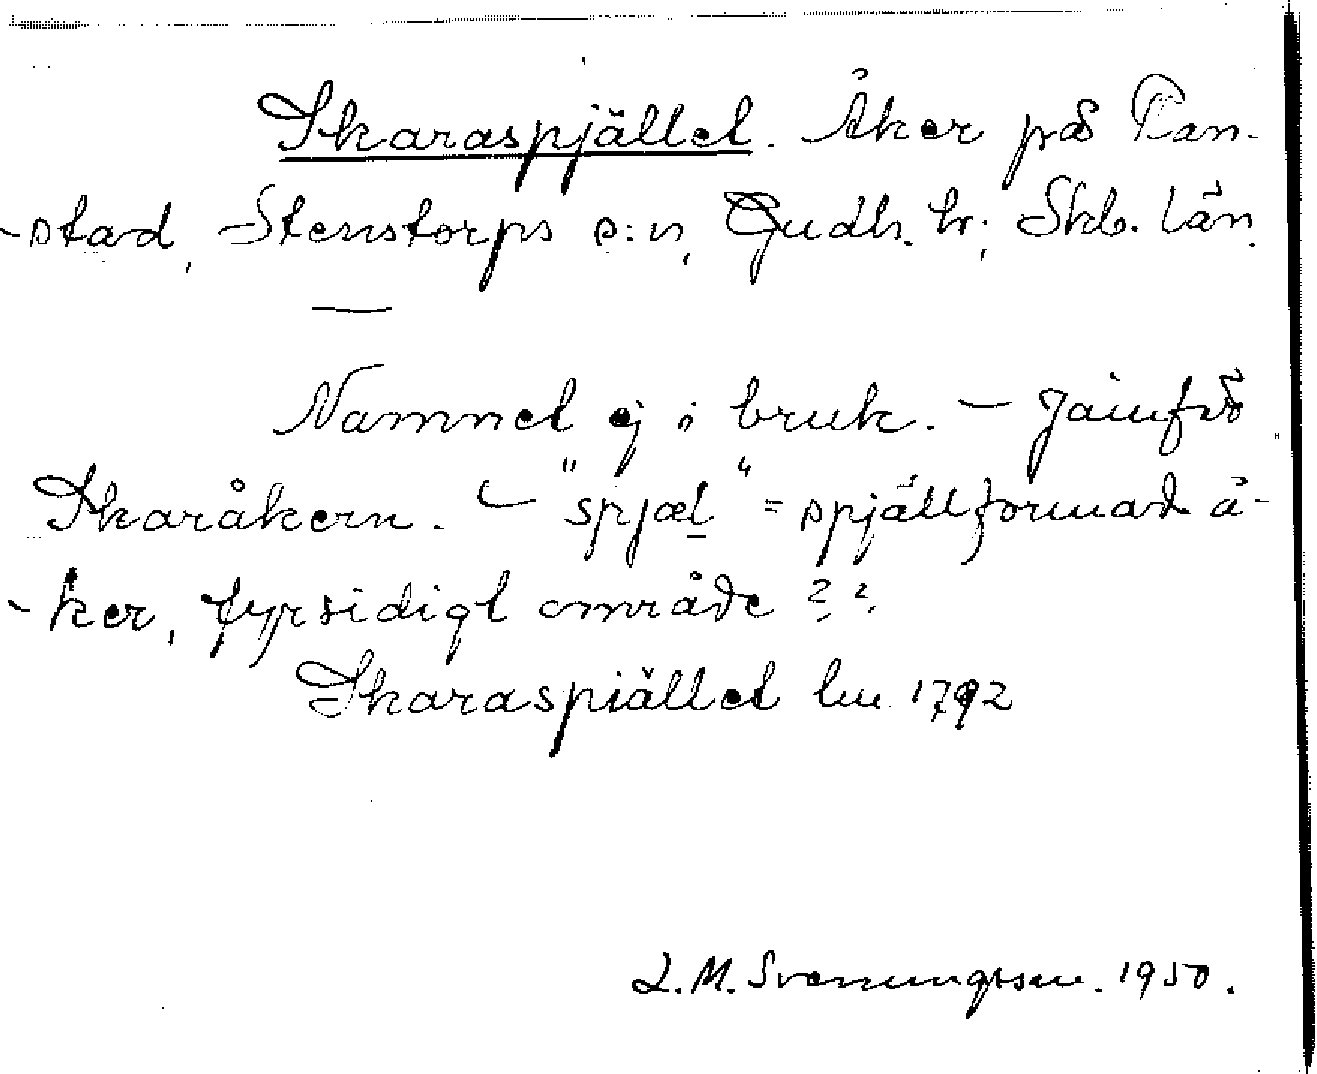 Skaraspjället. Åker på Tan-
-stad, Stenstorps s:n, Gudh. hr; Skb. län.
—
Namnet ej i bruk. — Jämför
Skaråkern. — "spjæl" = spjällformad å-
-ker, fyrsidigt område??
Skaraspiället lm 1792
L.M. Svenungsson. 1950.